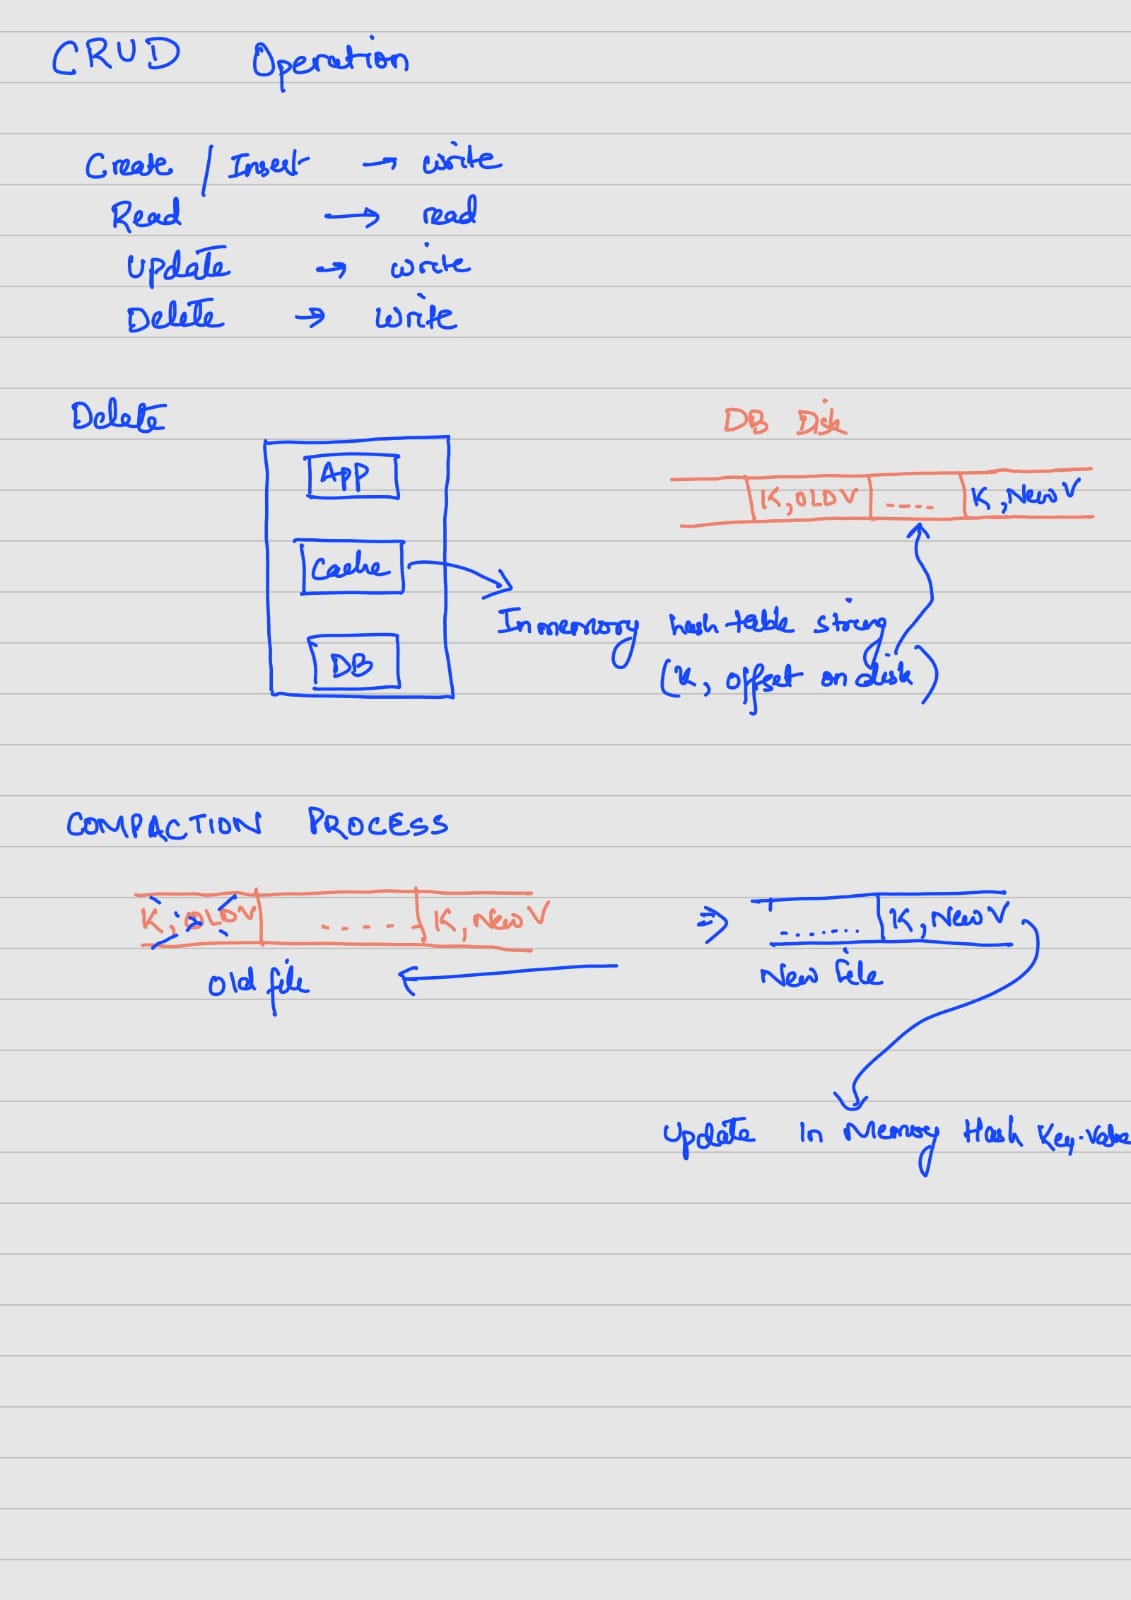 CRUD Operation
Create / Insert → write
Read → read
Update → write
Delete → write
Delete
DB Disk
App
K, OLD V
....
K, New V
Cache
In memory hash table string
(K, offset on disk)
DB
COMPACTION PROCESS
K, OLD V
.....
K, New V
⇒
.......
K, New V
Old file
New File
Update In Memory Hash Key-Value